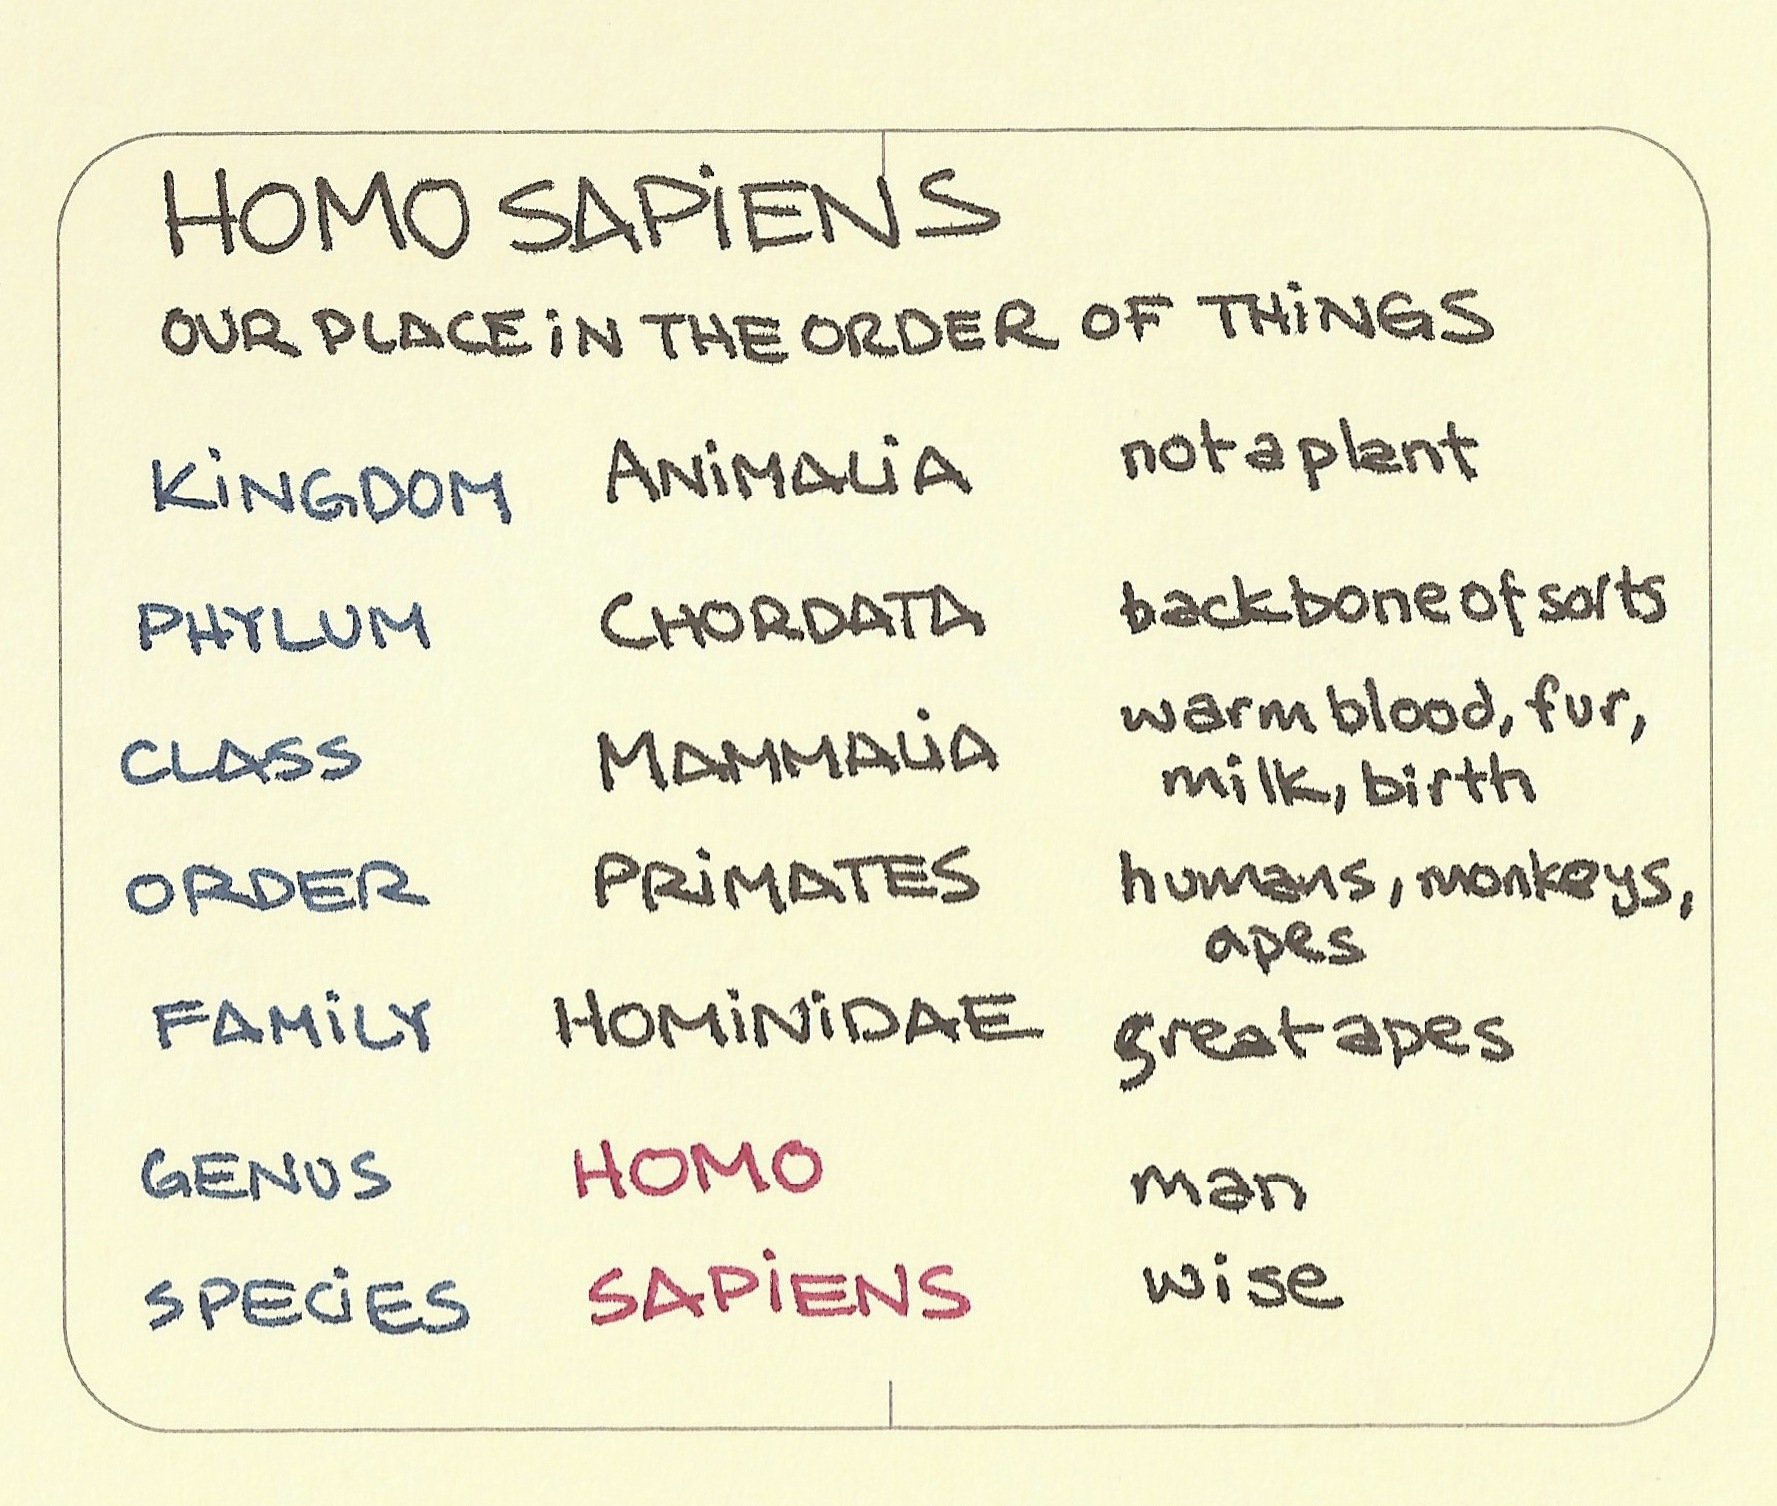 HOMO SAPiENS
OUR PLACE iN THE ORDER OF THiNGS
KiNGDOM ANiMALiA not a plant
PHYLUM CHORDATA backbone of sorts
CLASS MAMMALiA warm blood, fur,
milk, birth
ORDER PRiMATES humans, monkeys,
apes
FAMiLY HOMiNiDAE great apes
GENUS HOMO man
SPECiES SAPiENS wise